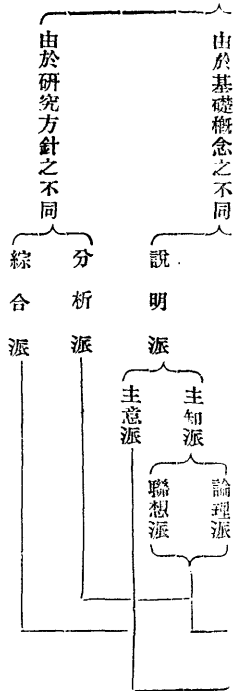 由於基礎概念之不同
說明派
主知派
論理派
聯想派
主意派
由於研究方針之不同
分析派
綜合派